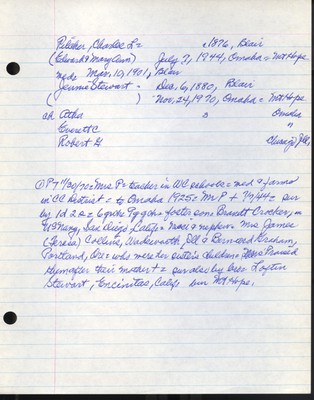 Pilcher, Charles L = c1876, Blair
(Edward & Mary Cain) July 7, 1944, Omaha = Mt Hope
m Mar. 10, 1901, Blair
Jennie Stewart - Dec. 6, 1880, Blair
( ) Nov, 24, 1970, Omaha = Mt Hope
ch Otha Omaha
Everett C "
Robert G Chicago, Ill,
P-T 11/30/70 = Mrs P = teacher in WC schools = med & farmed
in CC district = to Omaha 1925 = Mr P + 7/7/44 = sur
by 1d 2s = 6 grch 9 ggch = foster son Brandt Crocker, in
US Navy, San Diego Calif = niece & nephew Mrs James
(Teresa) Collins, Wadsworth, Ill & Bernard Graham,
Portland, Ore = who were her sister's children = Mrs P raised
them after their mother + = sur also by bro Loftin
Stewart, Encinitas, Calif bur Mt Hope,